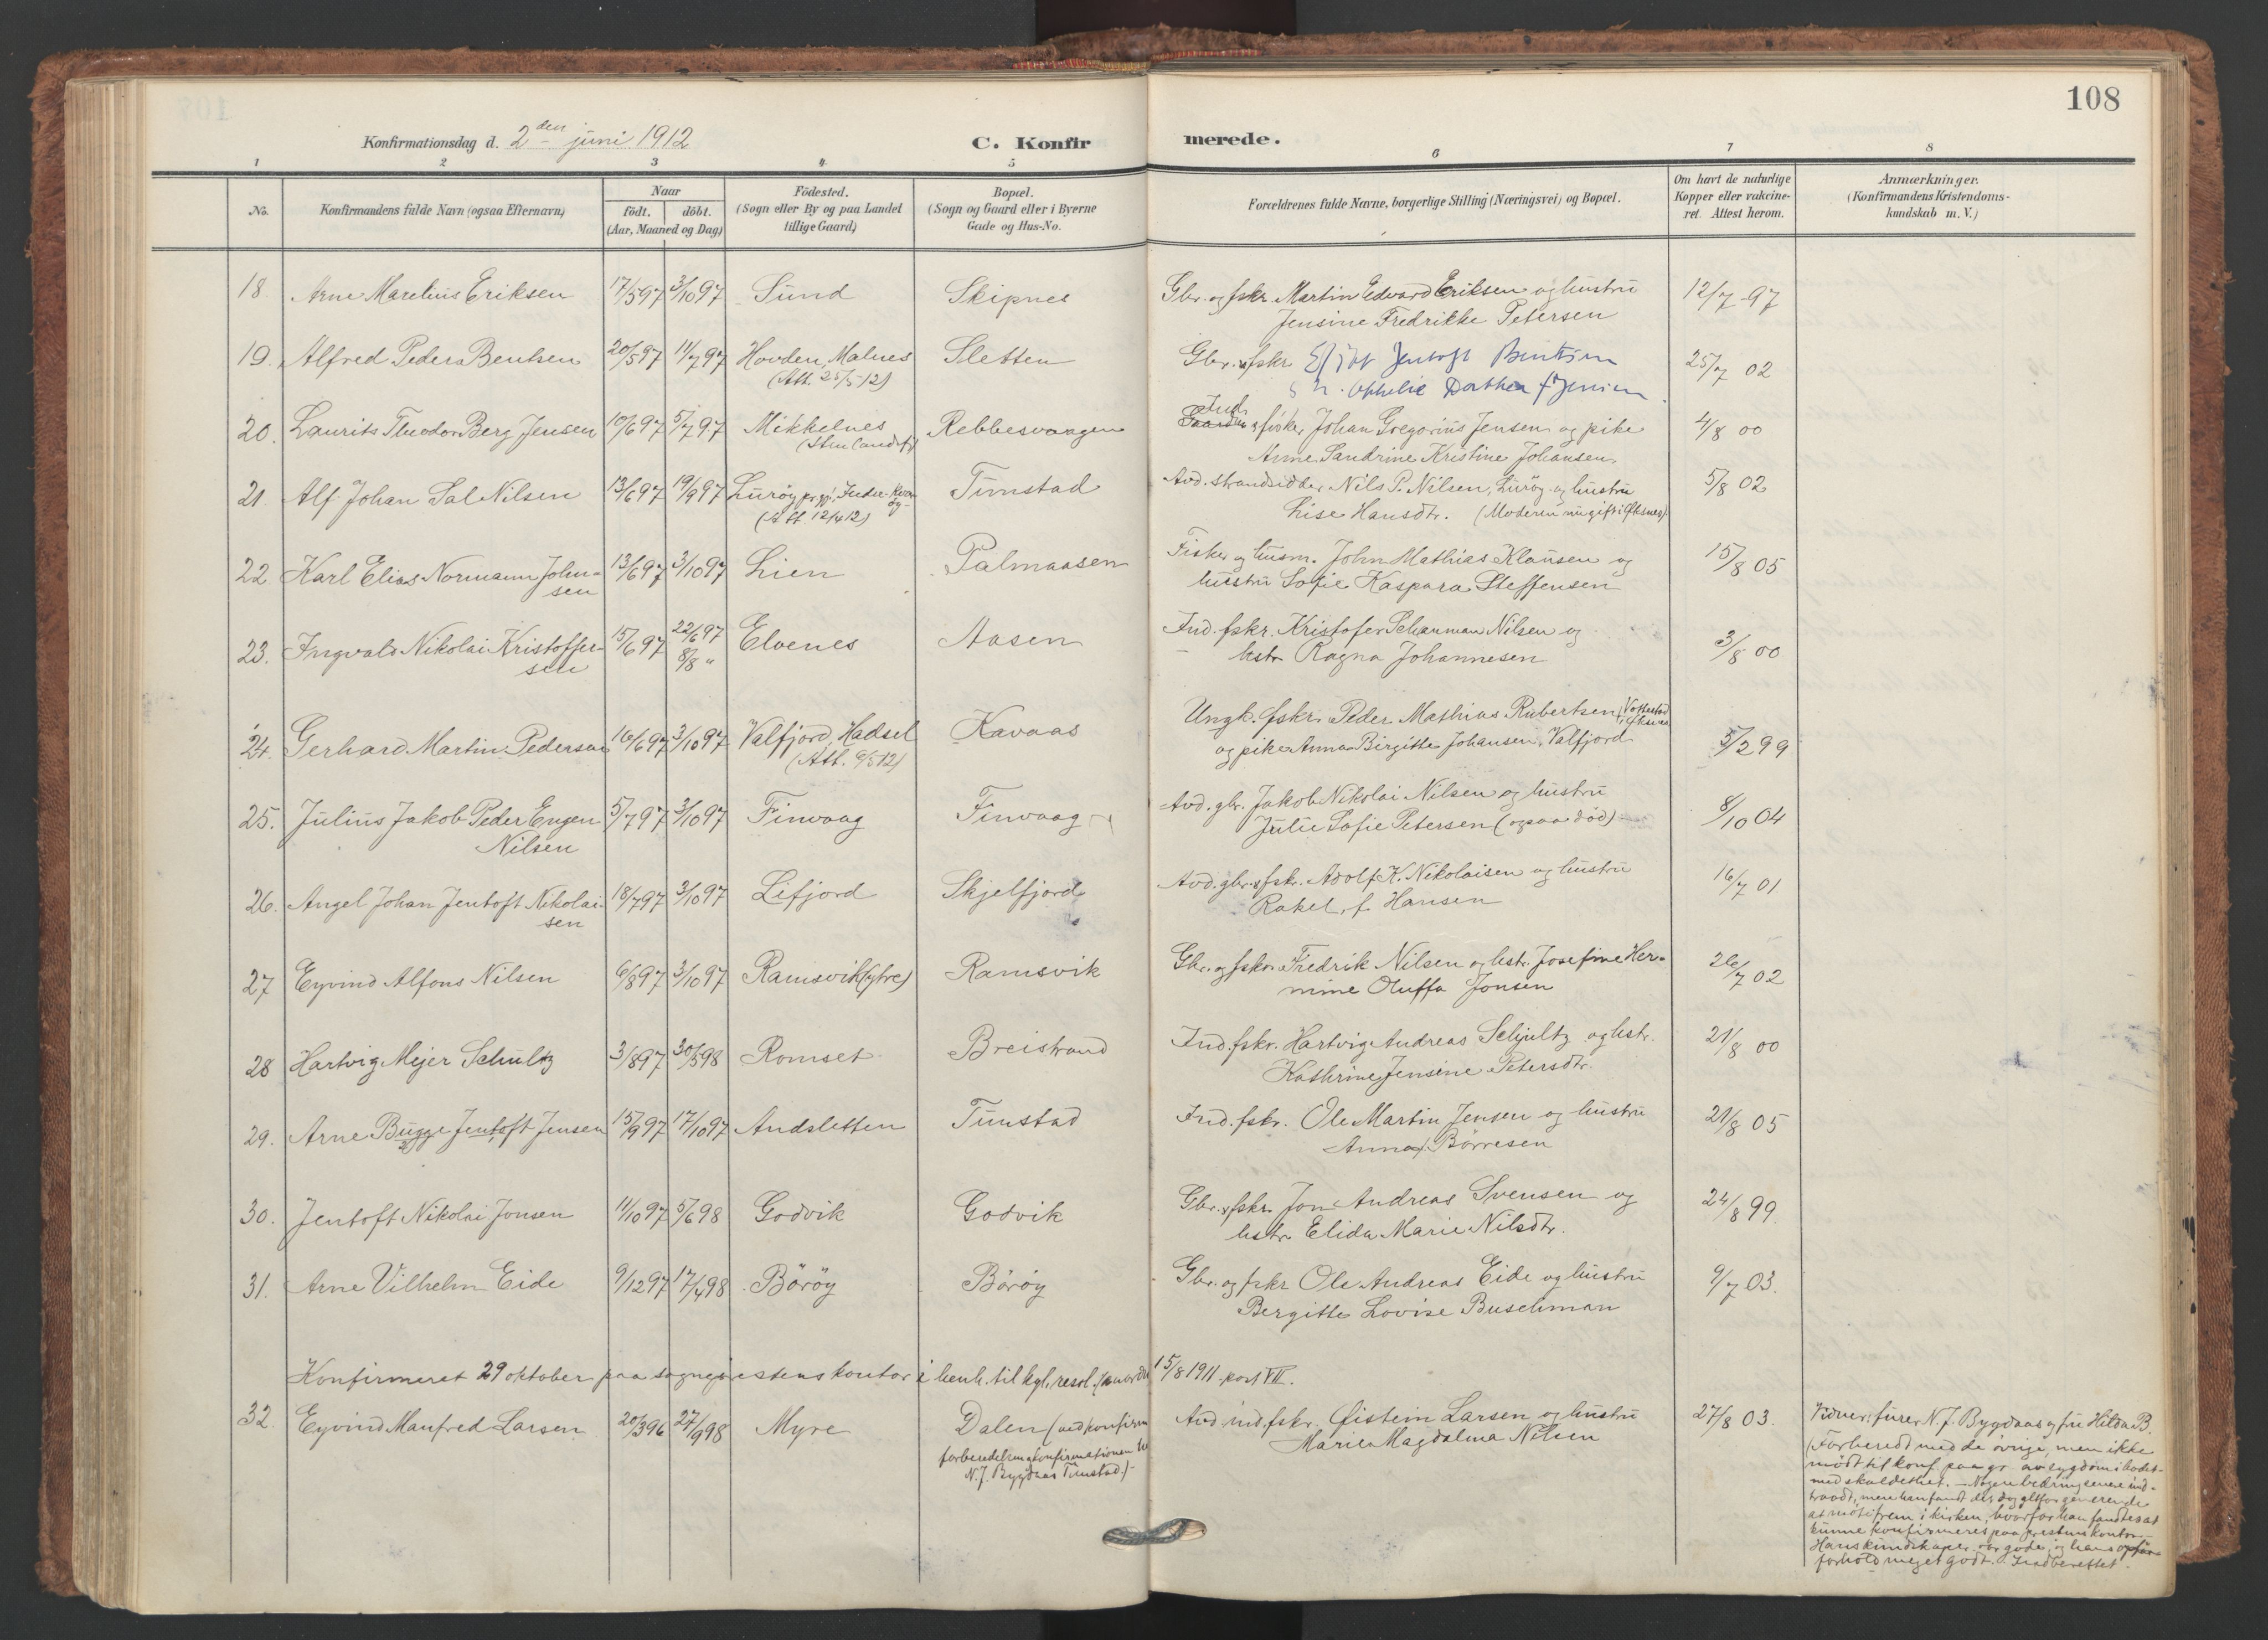 108
Konfirmationsdag d. 2den juni 1912
C. Konfirmerede.
1 2 3 4 5 6 7 8
No.
Konfirmandens fulde Navn (ogsaa Efternavn)
Naar
födt. döbt.
(Aar, Maaned og Dag)
Födested.
(Sogn eller By og paa Landet
tillige Gaard)
Bopæl.
(Sogn og Gaard eller i Byerne
Gade og Hus-No.
Forældrenes fulde Navne, borgerlige Stilling (Næringsvei) og Bopæl.
Om havt de naturlige
Kopper eller vakcine-
ret. Attest herom.
Anmærkninger.
(Konfirmandens Kristendoms-
kundskab m. V.)
18. Arne Marelius Eriksen 17/5 97 3/10 97 Sund Skipnes Gbr. og fskr. Martin Edvard Eriksen og hustru 12/7 97
Jensine Fredrikke Petersen
19. Alfred Peder Bentsen 20/5 97 11/7 97 Hovden, Malnes Sletten Gbr. & fskr. Jentoft Bentsen 25/7 02
(Att. 25/5 12) Dorthea f. Jensen
20. Laurits Theodor Berg Jensen 10/6 97 5/7 97 Mikkelnes Rebbesvaagen Ind. & fisker Johan Gregorius Jensen og pike 4/8 00
Anne Sandrine Kristine Johansen.
21. Alf Johan Sal Nilsen 13/6 97 19/9 97 Lurøy prgj. Indre-Kvarøy Tunstad Avd. strandsidder Nils P. Nilsen, Lurøy og hustru 5/8 02
(Att 12/4 12) Lise Hansdtr. (Moderen nu gift i Øksnes)
22. Karl Elias Normann John- 13/6 97 3/10 97 Lien Palmaasen Fisker og husm. John Mathias Klausen og 15/8 05
sen hustru Sofie Kaspara Steffensen
23. Ingvald Nikolai Kristoffer- 15/6 97 22/6 97 Elvenes Aasen Ind. fskr. Kristofer Schanman Nilsen og 3/8 00
sen 8/8 " hstr. Ragna Johannesen
24. Gerhard Martin Pedersen 16/6 97 3/10 97 Valfjord, Hadsel Kavaas Ungk. fskr. Peder Mathias Rubertsen, Vottestad i Øksnes
(Att. 6/5 12) og pike Anna Birgitte Johansen, Valfjord 5/2 99
25. Julius Jakob Peder Eugen 5/7 97 3/10 97 Finvaag Finvaag Avd. gbr. Jakob Nikolai Nilsen og hustru 8/10 04
Nilsen Julie Sofie Petersen (ogsaa död)
26. Angel Johan Jentoft Nikolai- 18/7 97 3/10 97 Lifjord Skjelfjord Avd. gbr. & fskr. Adolf K. Nikolaisen og hustru 16/7 01
sen Rakel, f. Hansen
27. Eyvind Alfons Nilsen 6/8 97 3/10 97 Ramsvik (ytre) Ramsvik Gbr. og fskr. Fredrik Nilsen og hstr. Josefine Her- 26/7 02
mine Oluffa Jonsen
28. Hartvig Mejer Schultz 3/8 97 30/5 98 Romset Breistrand Ind. fskr. Hartvig Andreas Schjultz og hstr. 21/8 00
Kathrine Jensine Petersdtr.
29. Arne Bugge Jentoft Jensen 15/9 97 17/10 97 Andsletten Tunstad Ind. fskr. Ole Martin Jensen og hustru 21/8 05
Anna f. Börresen
30. Jentoft Nikolai Jonsen 11/10 97 5/6 98 Godvik Godvik Gbr. & fskr. Jon Andreas Svensen og 24/8 99
hstr. Elida Marie Nilsdtr.
31. Arne Vilhelm Eide 9/12 97 17/4 98 Böröy Böröy Gbr. og fskr Ole Andreas Eide og hustru 9/7 03.
Bergitte Lovise Buschman
Konfirmeret 29 oktober paa sogneprestens kontor i henh. til kgl. resol. 15/8 1911 post VII.
32. Eyvind Manfred Larsen 20/3 96 27/9 98 Myre Dalen (ved konfirm. Avd. ind. fskr. Øistein Larsen og hustru 27/8 03.
forberedelsen & konfirmationen
N. J. Bygdaas Tunstad)
Marie Magdalena Nilsen
Vidner: furer N. J. Bygdaas og fru Hilda B.
(Forberedt med de övrige, men ikke
mödt til konf. paa gr. av sygdom i hodet-
med skaldethet. - Nogen bedring senere ind-
traadt, men han fandt det dog altfor generende
at möte frem i kirken, hvorfor han fandtes at
kunne konfirmeres paa prestens kontor. -
Hans kundskaper var gode, og hans
forhold meget godt. Indberettet.